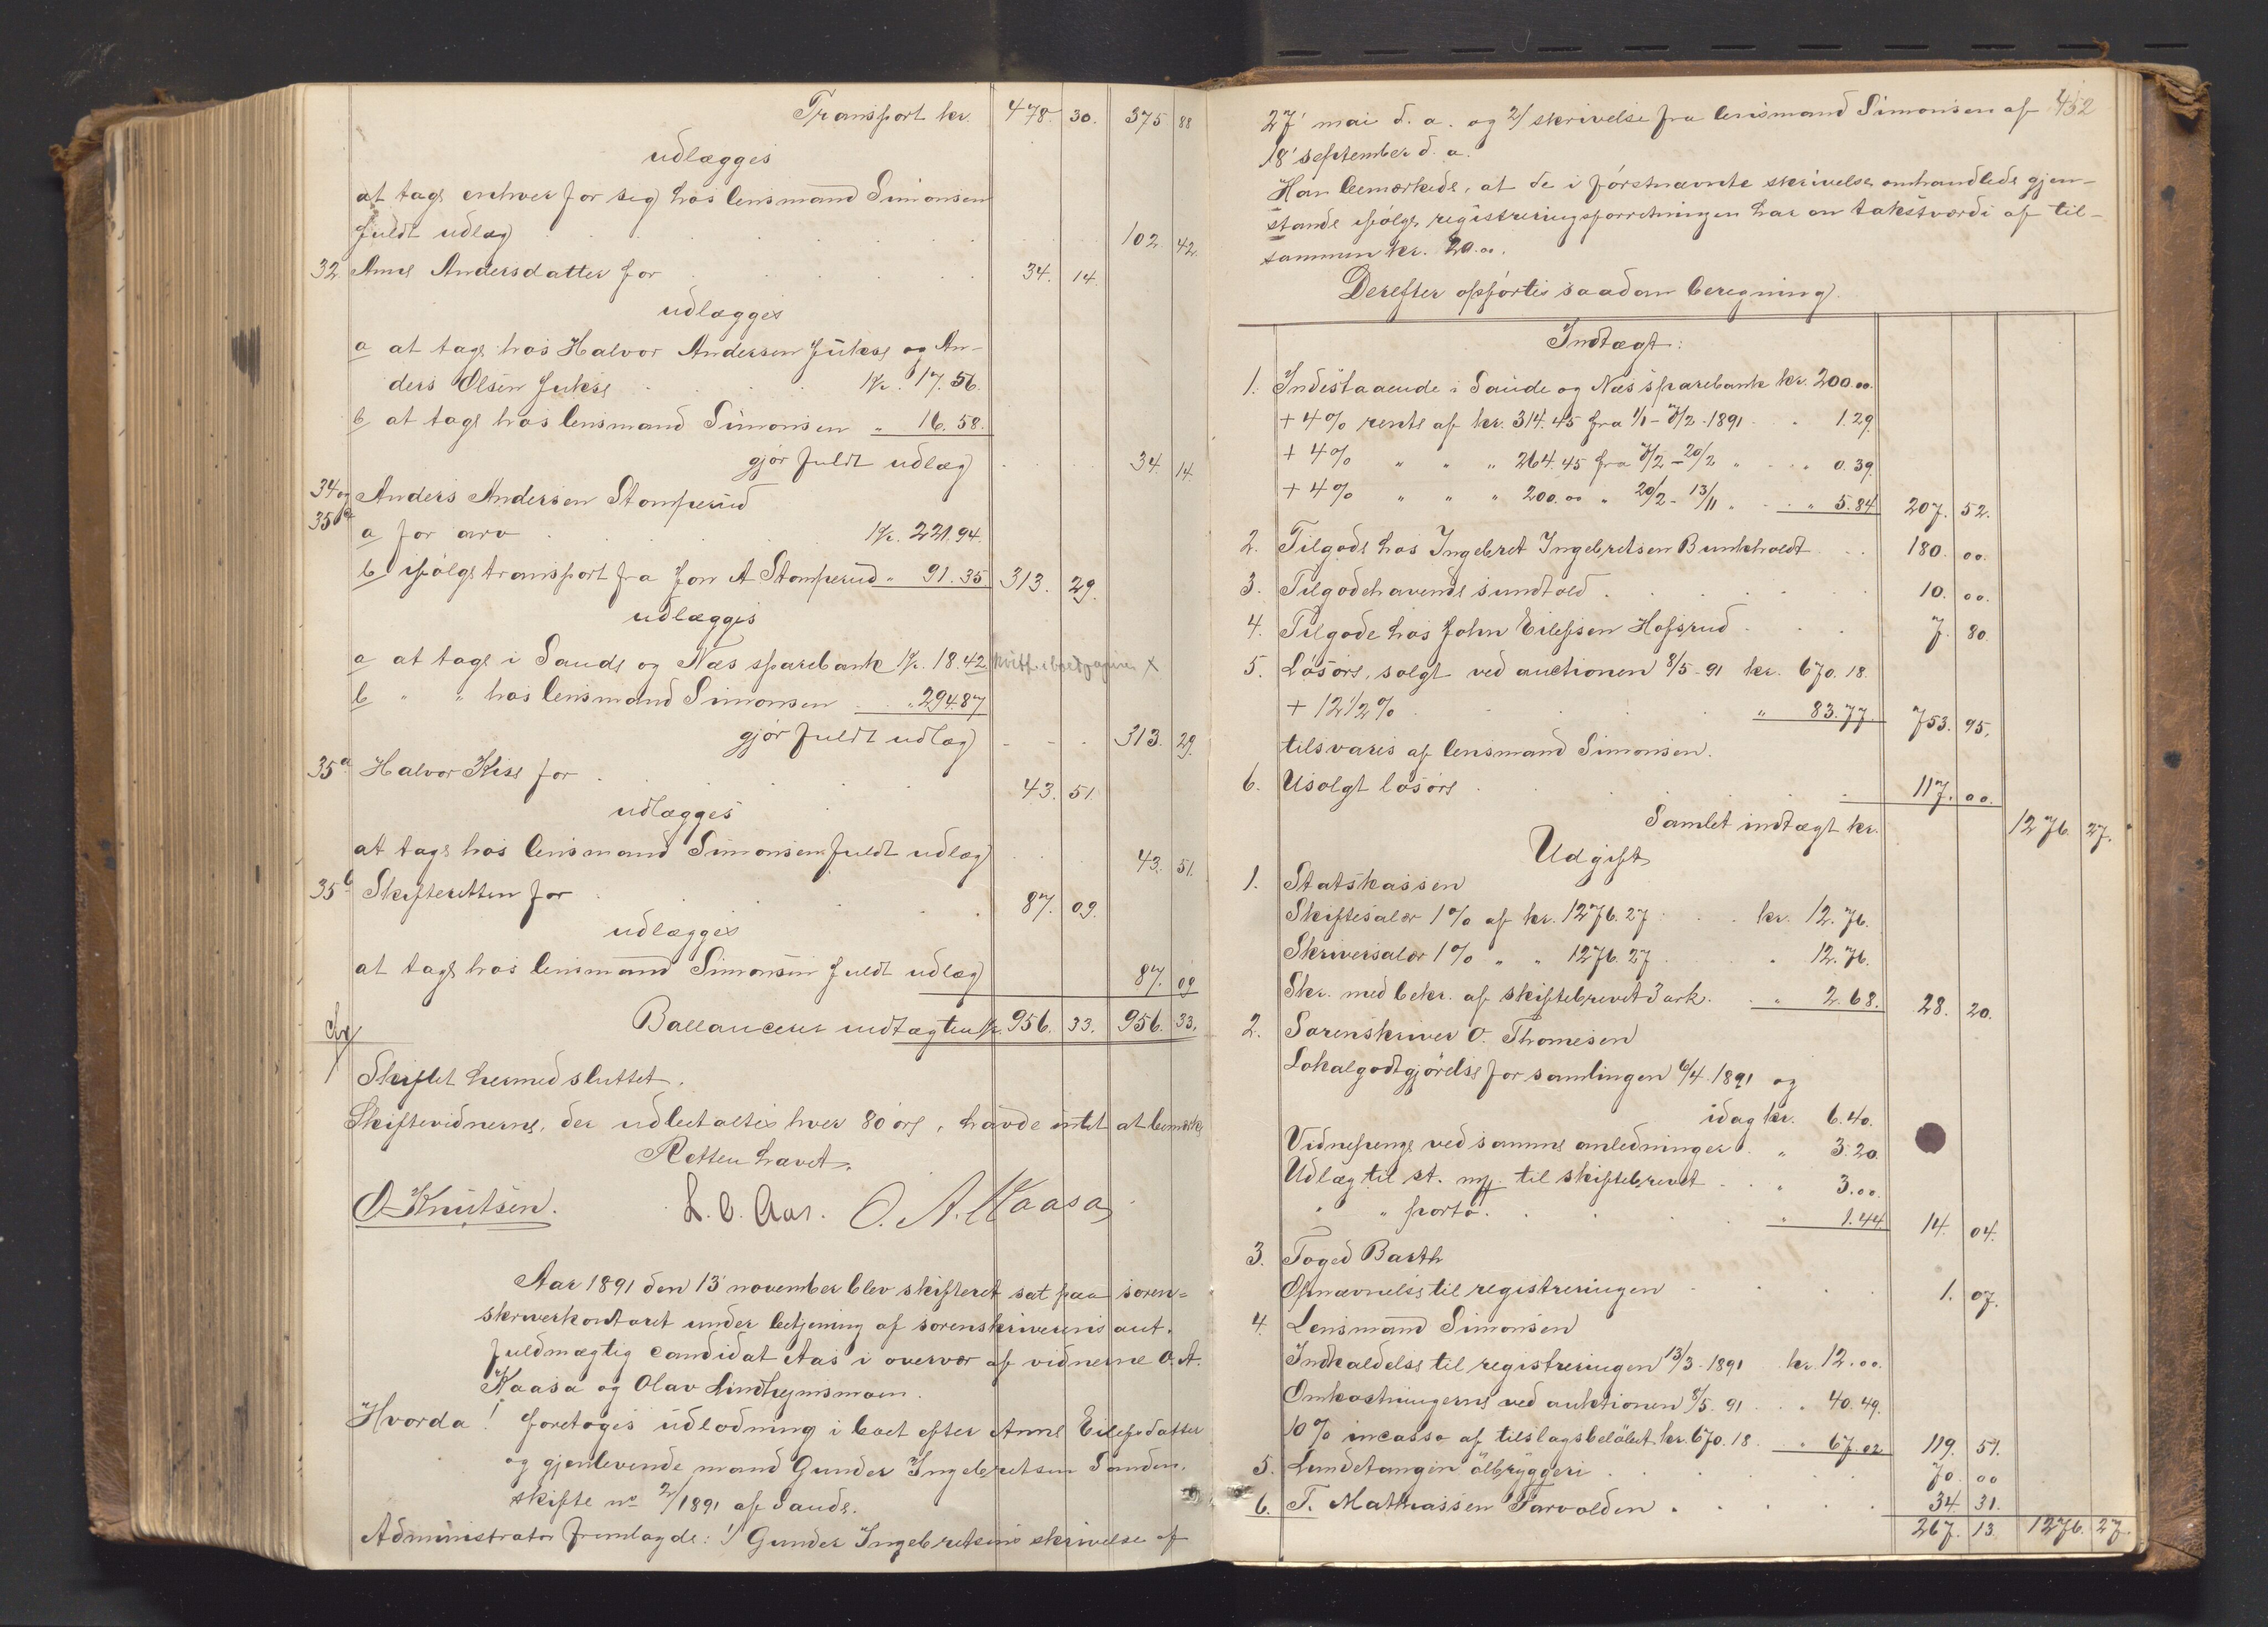 Transport kr. 478. 30. 375 88
udlægges
at tage enhver for seg hos lensmand Simonsen
fuldt udlæg 102. 42.
32 Anne Andersdatter for 34. 14.
udlægges
a at tage hos Halvor Andersen Jukse og An-
ders Olsen Jukse Kr. 17.56.
b at tage hos lensmand Simonsen " 16.58.
gjør fuldt udlæg 34. 14.
34 og Anders Andersen Stomperud
35
a for arv Kr. 221.94.
b ifølge transport fra Jon A Stomperud " 91.35 313. 29.
udlægges
a at tage i Saude og Næs sparebank Kr. 18.42
b " " hos lensmand Simonsen " 294.87
gjør fuldt udlæg 313. 29
35a Halvor Kise for 43. 51.
udlægges
at tage hos lensmand Simonsen fuldt udlæg 43. 51.
35b Skifteretten for 87. 09.
udlægges
at tage hos lensmand Simonsen fuldt udlæg 87. 09
Ballancerer indtægten Kr. 956. 33. 956. 33.
Skiftet hermed sluttet.
Skiftevidnerne, der udbetaltes hver 80 øre, havde intet at bemerke
Retten hævet.
O Knutsen. L. O. Aas. O. A. Kaasa
Aar 1891 den 13' november blev skifteret sat paa soren-
skriverkontoret under betjening af sorenskriverens aut.
fuldmægtig candidat Aas i overvær af vidnerne O. A.
Kaasa og Olav Lindhejmsmoen.
Hvorda! foretoges udlodning i boet efter Anne Eilefsdatter
og gjenlevende mand Gunder Ingebretsen Sanden.
skifte no 2/1891 af Saude.
Administrator fremlagde: 1/ Gunder Ingebretsens skrivelse af
452
27' mai d. a. og 2/ skrivelse fra lensmand Simonsen af
18' september d. a.
Han bemærkede, at de i førstnævnte skrivelse omhandlede gjen-
stande ifølge registreringsforretningen har en takstværdi af til-
sammen kr. 20.00.
Derefter opførtes saadan beregning.
Indtægt:
1. Indestaaende i Saude og Næs sparebank kr. 200.00.
+ 4% rente af kr. 314.45 fra 1/1 - 7/2 - 1891 " 1.29.
+ 4% " " " 264.45 fra 7/2 - 20/2 " " 0.39.
+ 4% " " " 200.00 " 20/2 - 13/11 " " 5.84 207. 52.
2. Tilgode hos Ingebret Ingebretsen Bunkholdt 180. 00.
3. Tilgodehavende sundtold 10. 00.
4. Tilgode hos John Eilefsen Hofsrud 7. 80.
5. Løsøre, solgt ved auctionen 8/5 - 91 kr. 670.18.
+ 12 1/2 % " 83.77. 753. 95.
tilsvares af lensmand Simonsen.
6. Usolgt løsøre 117. 00.
Samlet indtægt kr. 1276. 27.
Udgift
1. Statskassen
Skiftesalær 1% af kr. 1276.27 kr. 12.76.
Skriversalær 1% " " 1276.27 " 12.76.
Skr. med bekr. af skiftebrevet 3 ark. " 2.68. 28. 20.
2. Sorenskriver O. Thomesen
Lokalgodtgjørelse for samlingen 6/4 - 1891 og
idag kr. 6.40.
Vidnepenge ved samme anledninger " 3.20
Udlæg til st. mp. til skiftebrevet " 3.00.
" " porto. " 1.44. 14. 04.
3. Foged Barth
Opnævnelse til registreringen 1. 07.
4. Lensmand Simonsen
Indkaldelse til registreringen 13/3 - 1891 kr. 12.00.
Omkostningerne ved auktionen 8/5 - 91 " 40.49.
10% incasso af tilslagsbeløbet kr. 670.18 " 67.02 119. 51.
5. Lundetangen ølbryggeri 70. 00
6. T. Mathiassen Farvolden 34. 31.
267. 13. 1276. 27.